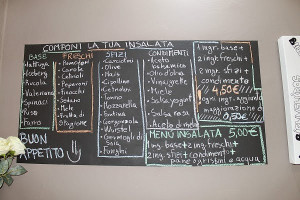 COMPONI LA TUA INSALATA
BASE
Lattuga
Iceberg
Rucola
Valeriana
Spinaci
Riso
Farro
FRESCHI
Pomodori
Carote
Cetrioli
Peperoni
Finocchi
Sedano
Mele
Frutta di
Stagione
SFIZI
Carciofini
Olive
Mais
Cipolline
Cetriolini
Tonno
Mozzarella
Fontina
Gorgonzola
Würstel
Germogli di
Soia
Funghi
CONDIMENTI
Aceto
balsamico
Olio d'oliva
Vinaigrette
Miele
Salsa yogurt
Salsa rosa
Aceto di mele
1 ingr. base +
2 ingr. freschi +
2 ingr. sfizi +
condimento
4,50€
ogni aggiunta
maggiorazione
di
0,50€
BUON
APPETITO
MENÙ INSALATA 5,00€
1 ingr. base + 2 ingr. freschi +
2 ingr. sfizi + condiment. +
pane o grissini e acqua